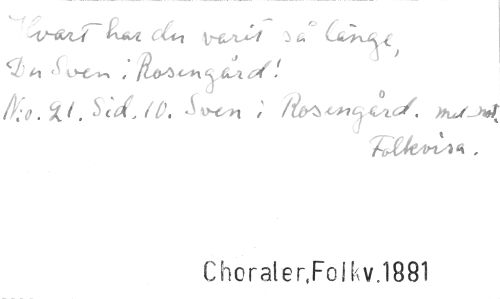 Hvart har du varit så länge,
Du Sven i Rosengård!
N:o. 21. Sid. 10. Sven i Rosengård. mel.
Folkvisa.
Choraler,Folkv.1881